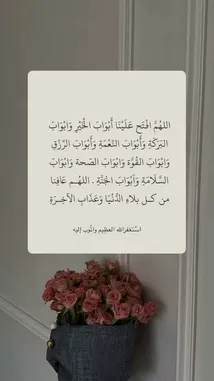 اللهُمَّ افْتَح عَلَيْنَا أَبْوَابَ الْخَيْرِ وَابْوَابَ
البَرَكَةِ وَأَبْوَابَ النّعْمَةِ وَأَبْوَابَ الرِّزْقِ
وَابْوَابَ القُوَّة وَابْوَابَ الصّحة وَابْوَابَ
السَّلَامَةِ وَاَبْوَابَ الجَنَّةِ . اللهُـم عَافِنا
من كـل بـلاءِ الدُّنْيَا وَعَذَابِ الآخِـرَةِ
استَغفرالله العظِيم واتُوب إليه